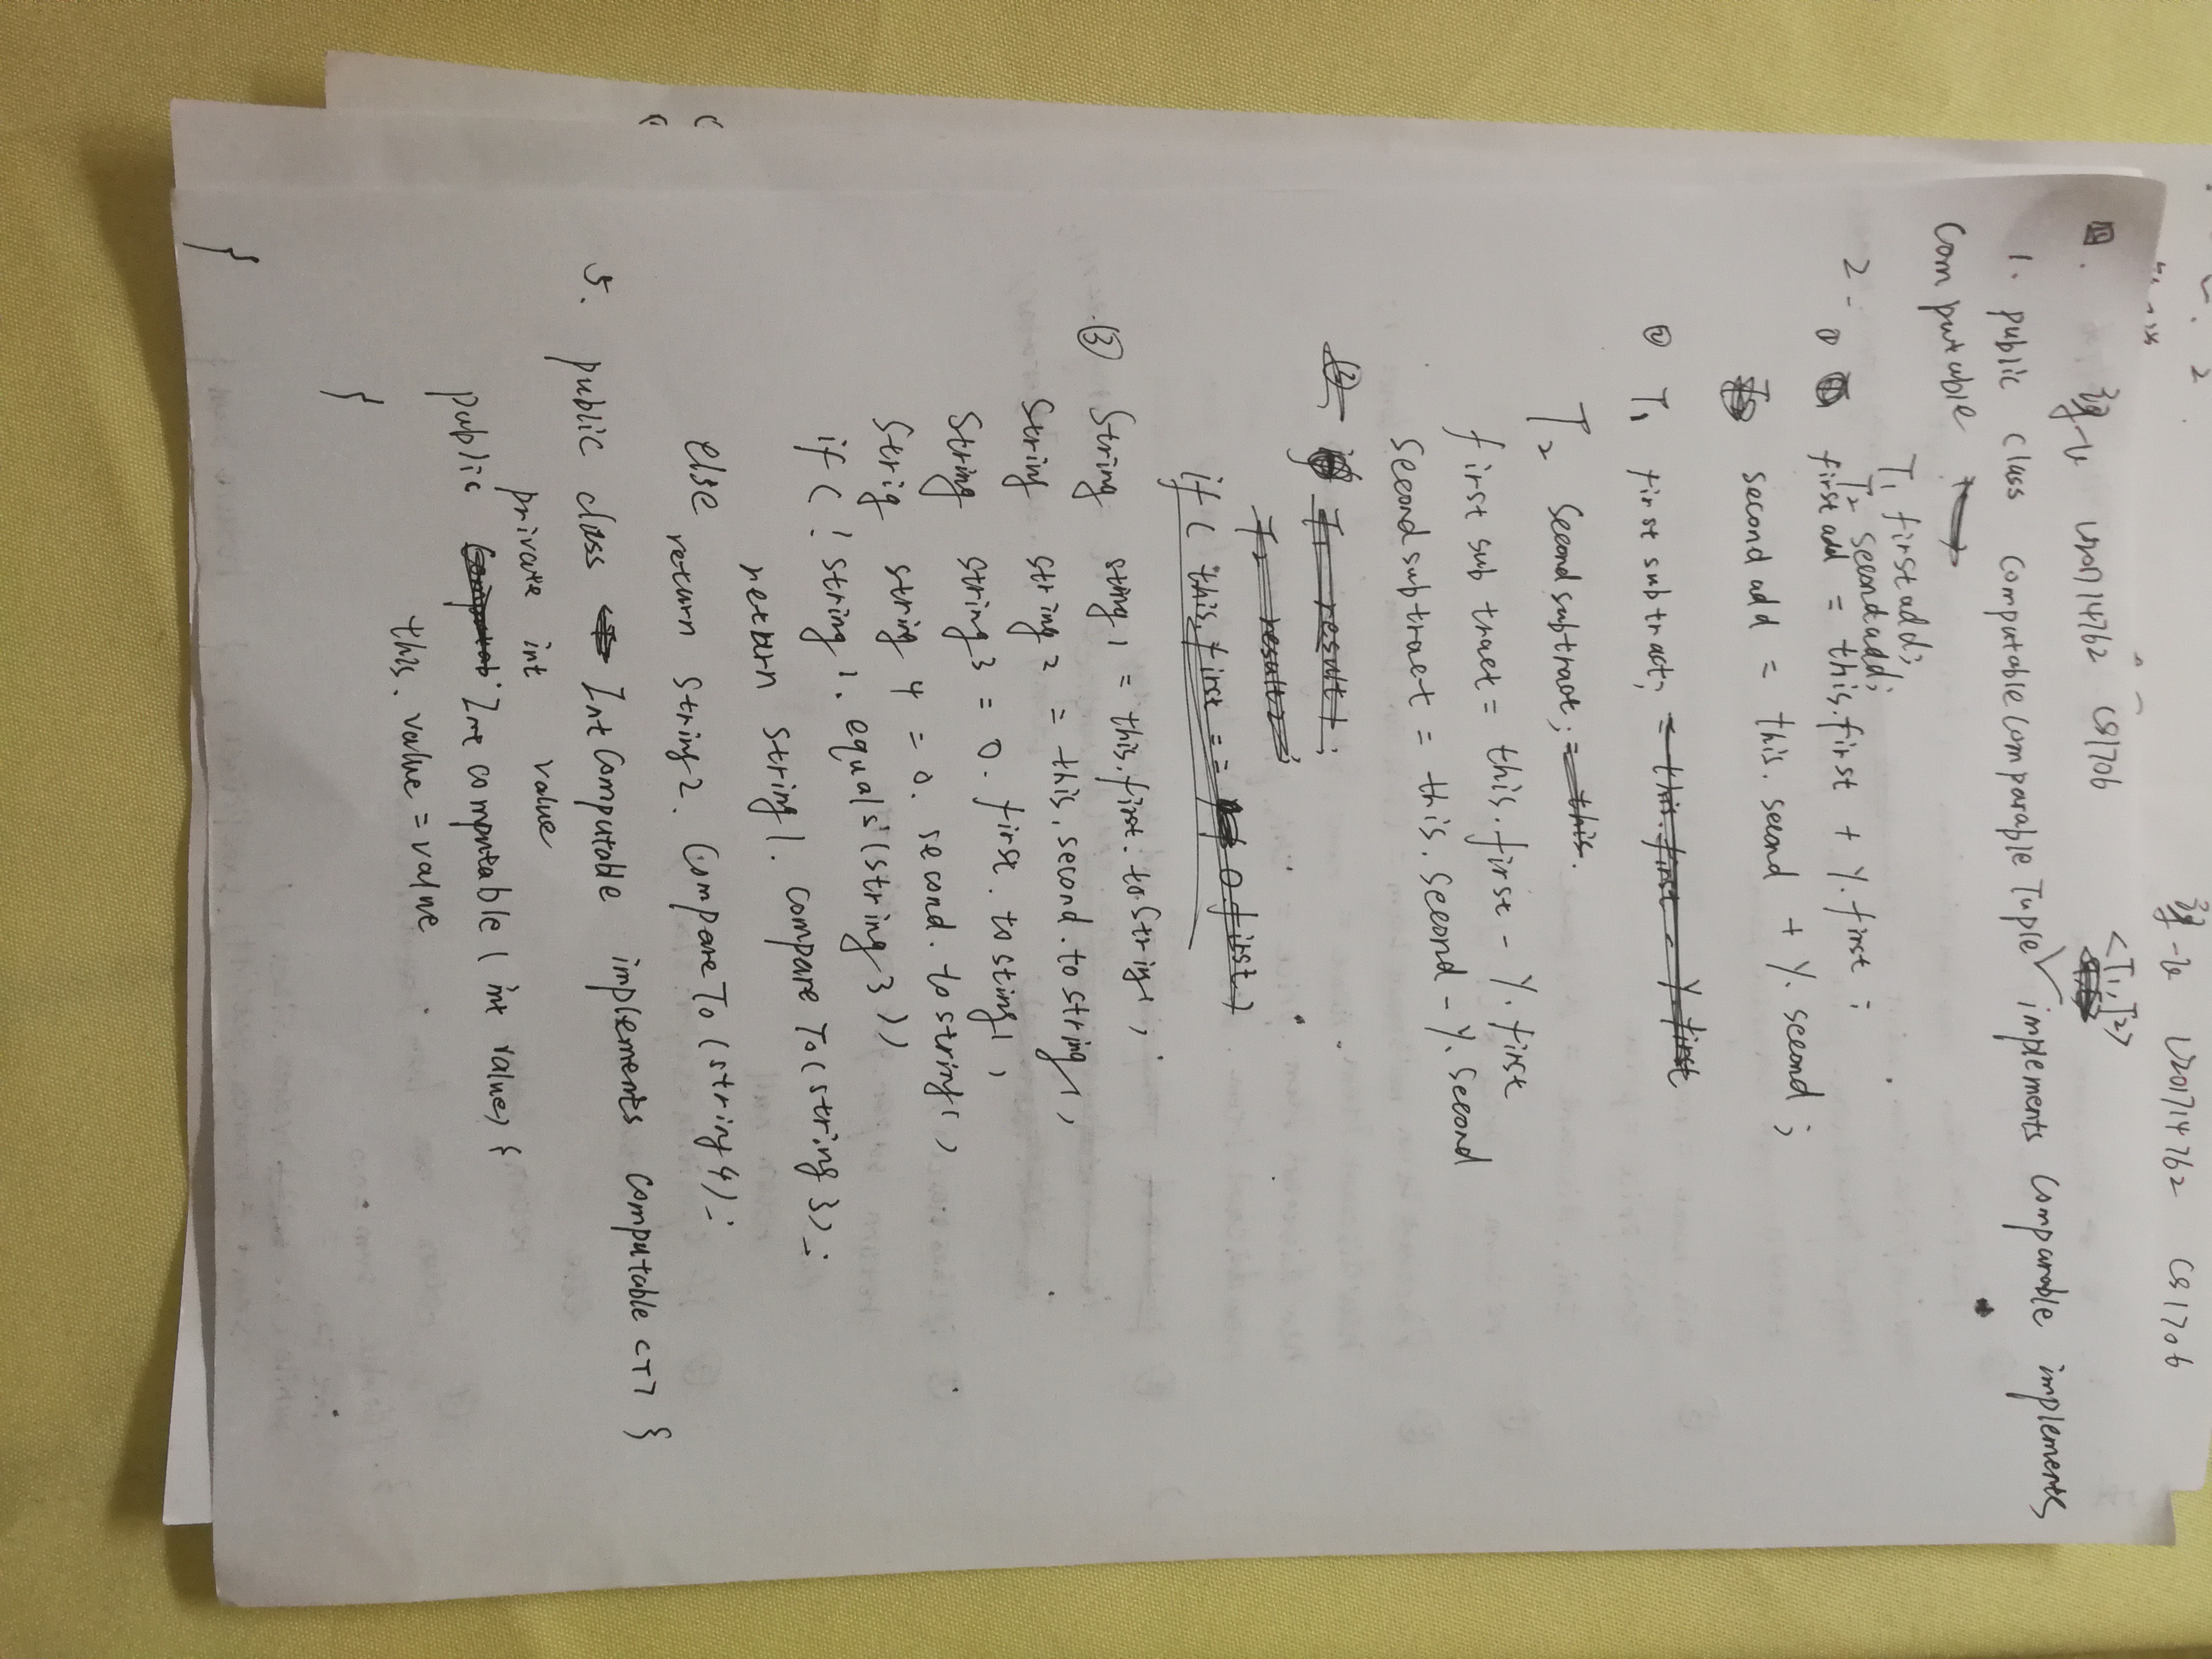 U201714762 CS1706
四. U201714762 CS1706
<T1,T2>
1. public class ComputableComparableTuple implements Comparable implements
Computable
T1 firstadd;
T2 secondadd;
2. ① firstadd = this.first + y.first;
second add = this.second + y.second;
② T1 first subtract; = this.first - y.first
T2 second subtract; = this.
first subtract = this.first - y.first
second subtract = this.second - y.second
③ T1 result1;
T2 result2;
if ( this.first == o.first )
③ String string1 = this.first.toString();
String string2 = this.second.toString();
String string3 = o.first.toString();
String string4 = o.second.toString();
if ( ! string1.equals(string3))
return string1.compareTo(string3);
else
return string2.compareTo(string4);
5. public class IntComputable implements Computable <T> {
private int value
public Intcomputable ( int value) {
this.value = value
}
}